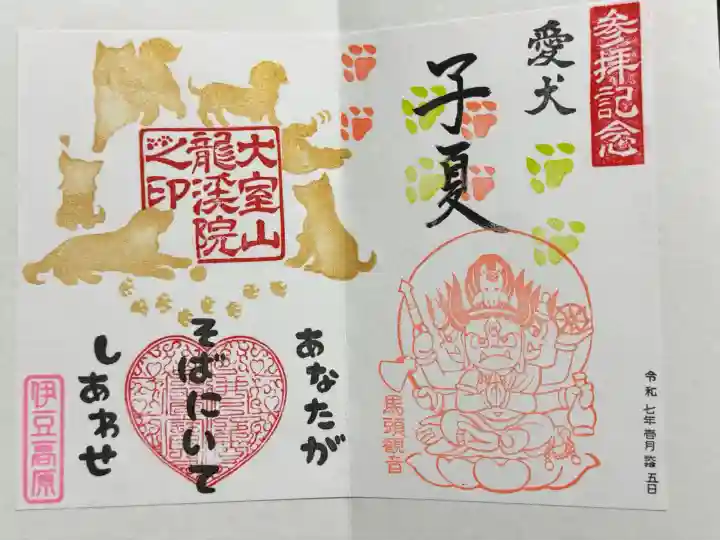 参拝記念
愛犬
子夏
馬頭観音
令和七年壱月拾五日
大室山
龍渓院
之印
あなたが
そばにいて
しあわせ
伊豆高原